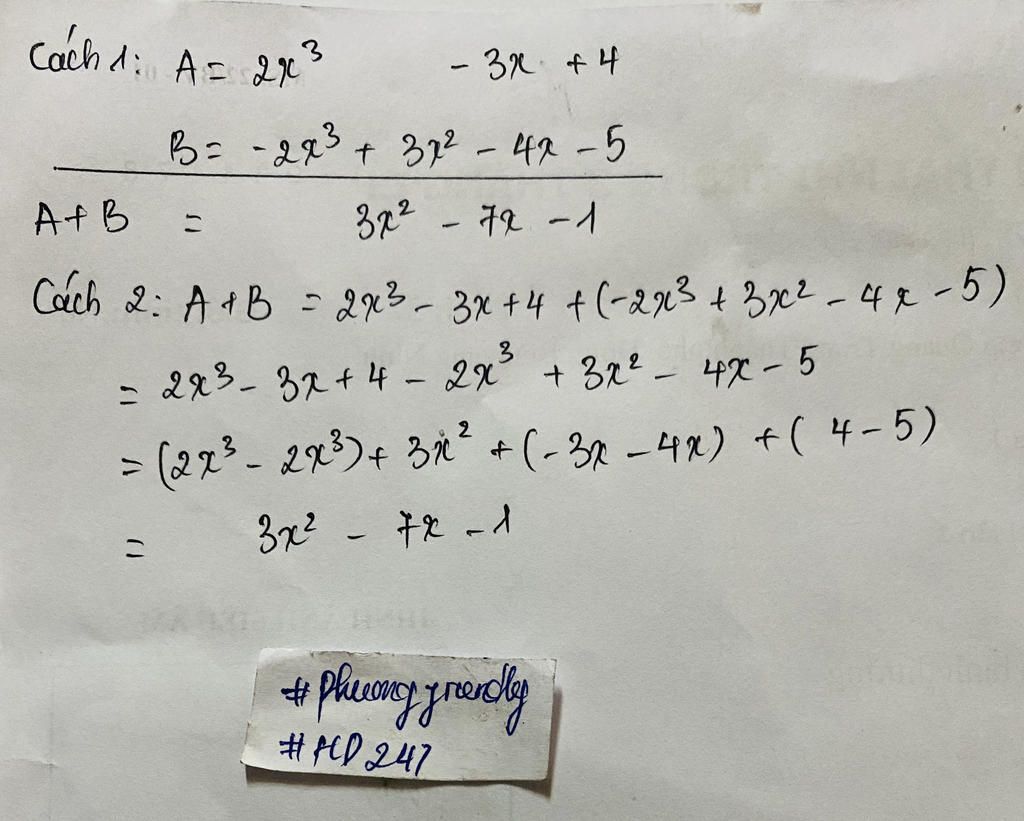 Cách 1: A = 2x³ - 3x + 4
B = -2x³ + 3x² - 4x - 5
A + B = 3x² - 7x - 1
Cách 2: A + B = 2x³ - 3x + 4 + (-2x³ + 3x² - 4x - 5)
= 2x³ - 3x + 4 - 2x³ + 3x² - 4x - 5
= (2x³ - 2x³) + 3x² + (-3x - 4x) + (4 - 5)
= 3x² - 7x - 1
#phuongfriendly
#HD247